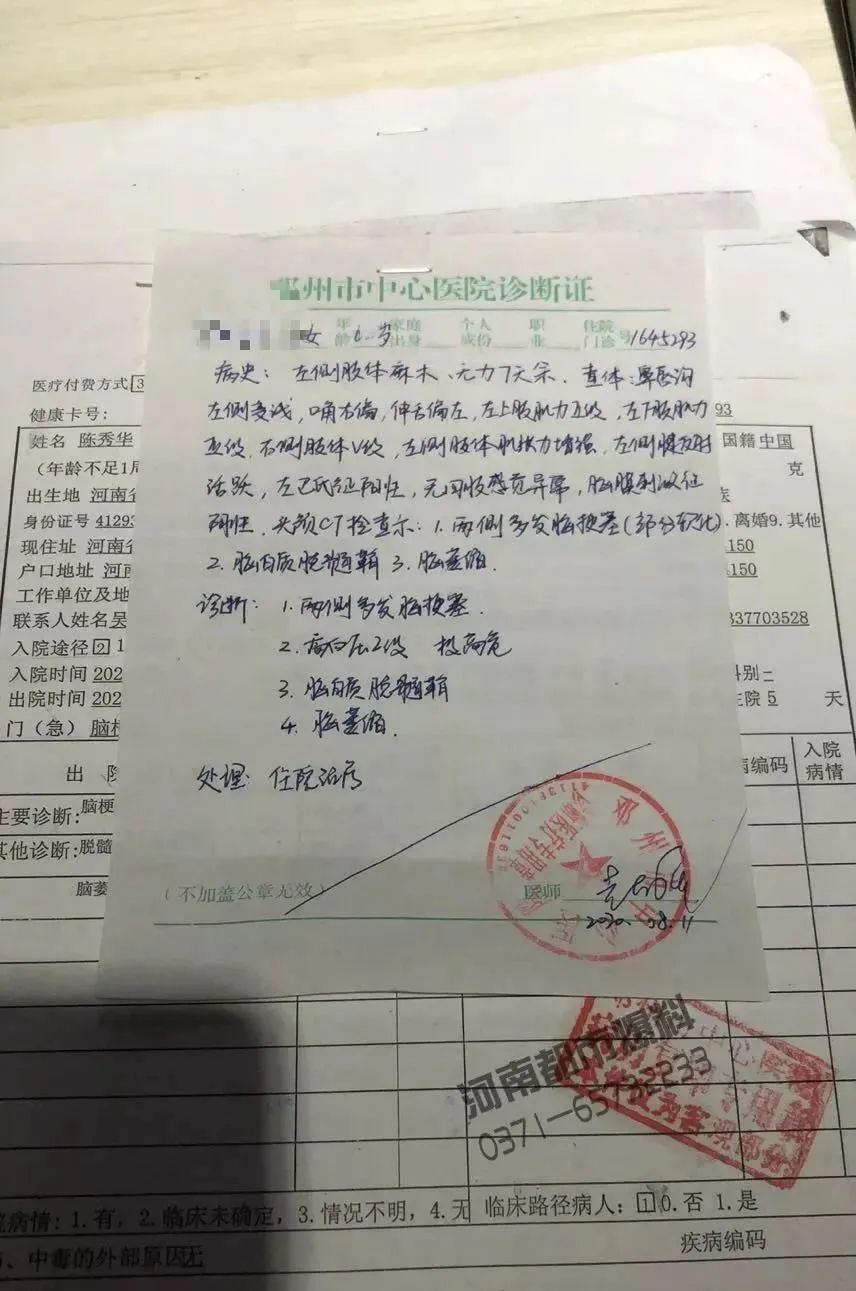 州市中心医院诊断证
女 年龄 岁 家庭出身 个人成份 职业 住院门诊号1645293
病史：左侧肢体麻木、无力7天余．查体：鼻唇沟
左侧变浅，嘴右偏，伸舌偏左，左上肢肌力Ⅱ级，左下肢肌力
级，右侧肢体Ⅴ级，左侧肢体肌张力增强，左侧腱反射
活跃，左巴氏征阳性，无四肢感觉异常，脑膜刺激征
阴性．头颅CT检查示：1.两侧多发脑梗塞(部分软化)
2.脑白质脱髓鞘 3.脑萎缩．
诊断：1.两侧多发脑梗塞．
2.高血压2级 极高危
3.脑白质脱髓鞘
4.脑萎缩．
处理：住院治疗
（不加盖公章无效）
医师
2020.08.11
医疗付费方式 3
健康卡号：
93
姓名 陈秀华
国籍 中国
（年龄不足1周
克
出生地 河南省
身份证号 41293
离婚9.其他
现住址 河南省
4150
户口地址 河南
4150
工作单位及地
联系人姓名吴
337703528
入院途径 2 1
入院时间 202
科别二
出院时间 202
住院 5 天
门（急）脑梗
出 院
病编码
入院病情
主要诊断:脑梗
其他诊断:脱髓
脑萎
河南都市爆料
0371—65732233
院病情：1.有，2.临床未确定，3.情况不明，4.无
临床路径病人：1 0.否 1.是
、中毒的外部原因无
疾病编码